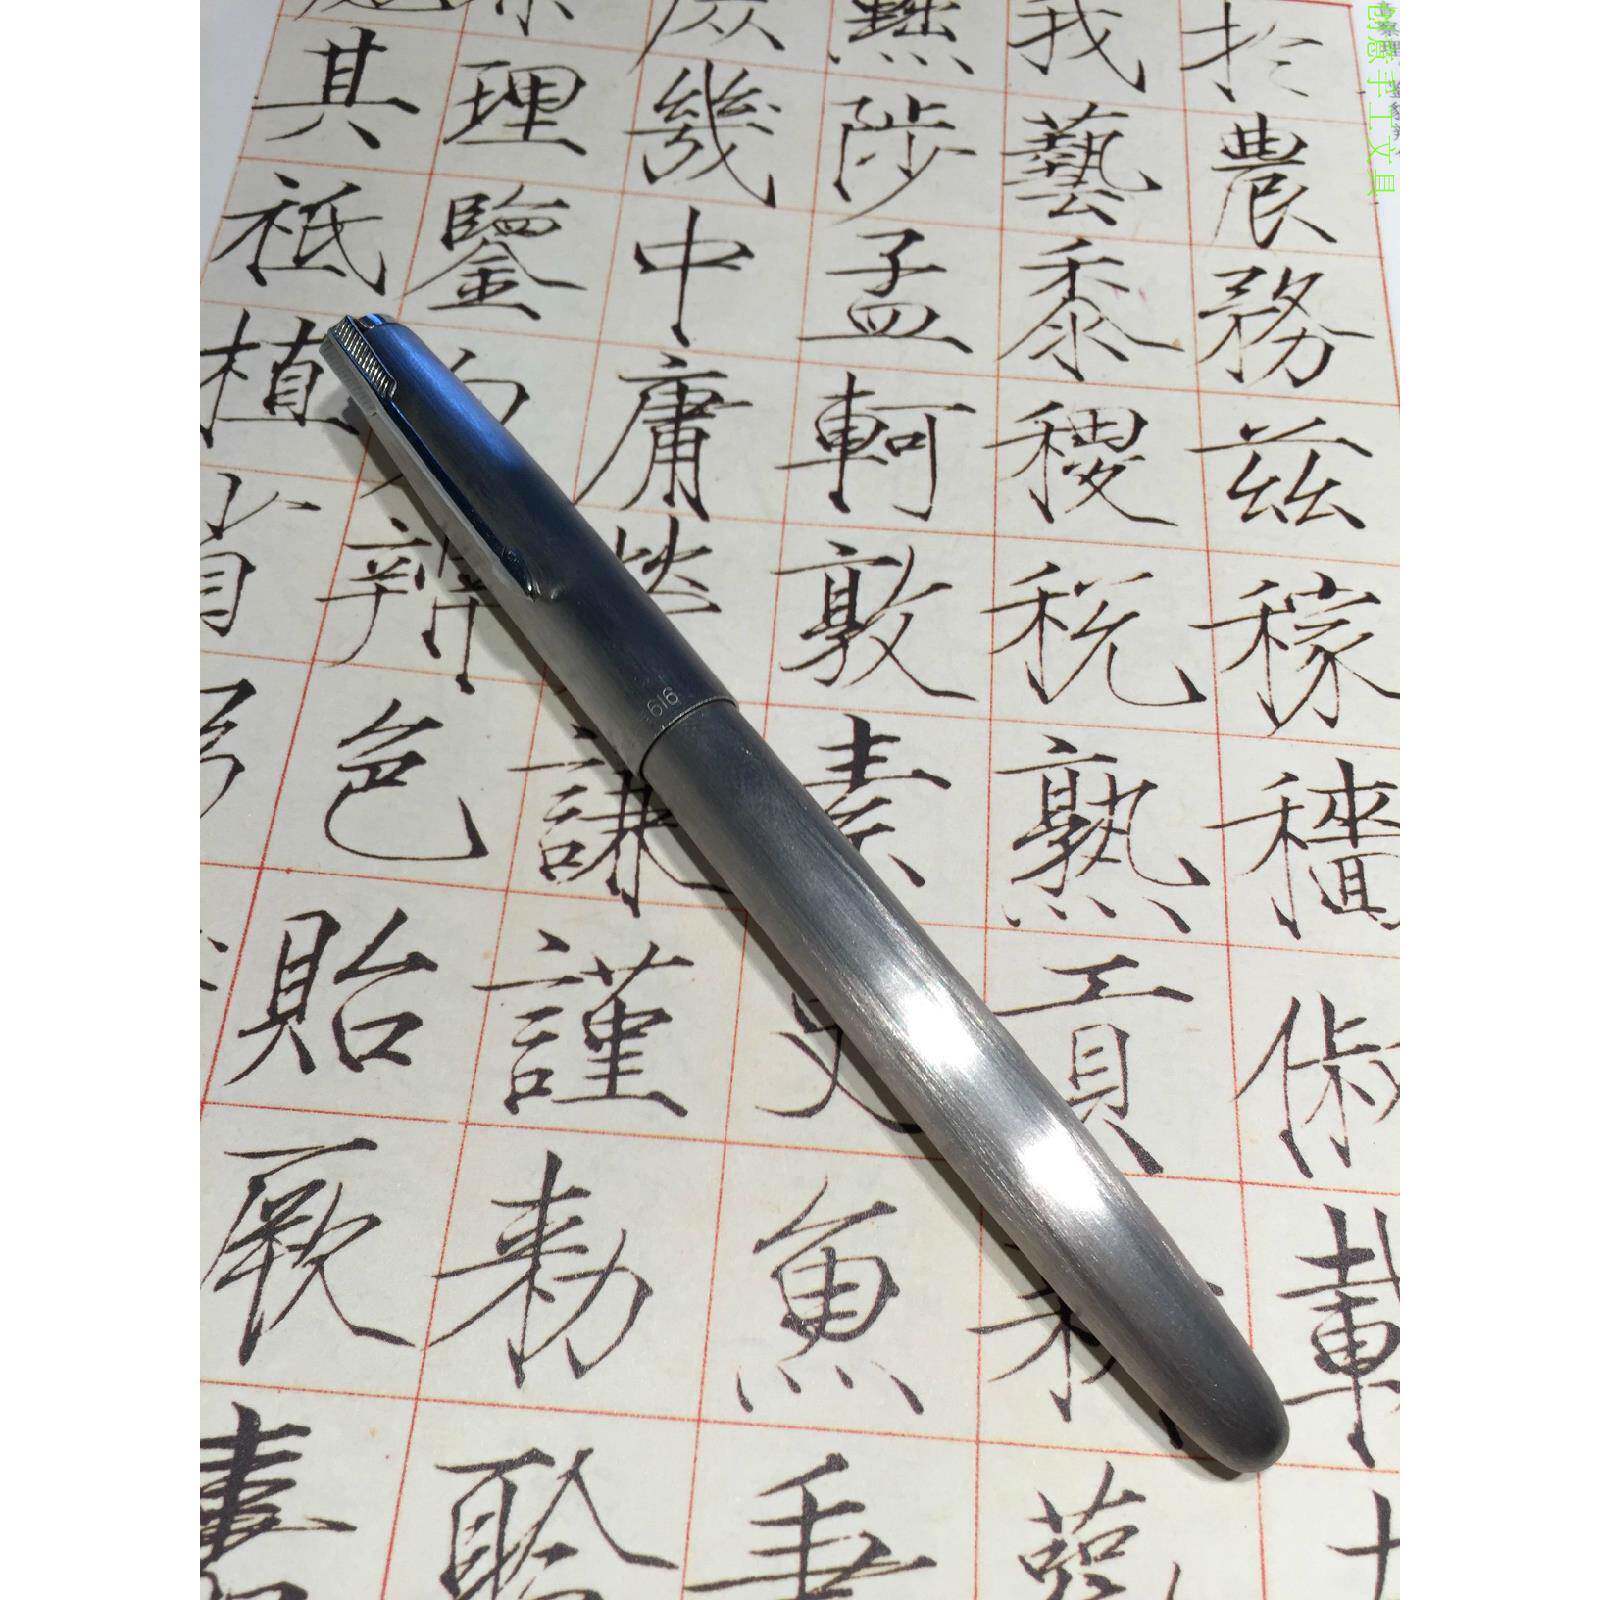 於農務茲稼穡俶載
我藝黍稷稅熟貢
黜陟孟軻敦素史魚秉
庶幾中庸勞謙謹勅聆
理鑒辨色貽厥嘉
其祗植省躬
616
创意手工文具